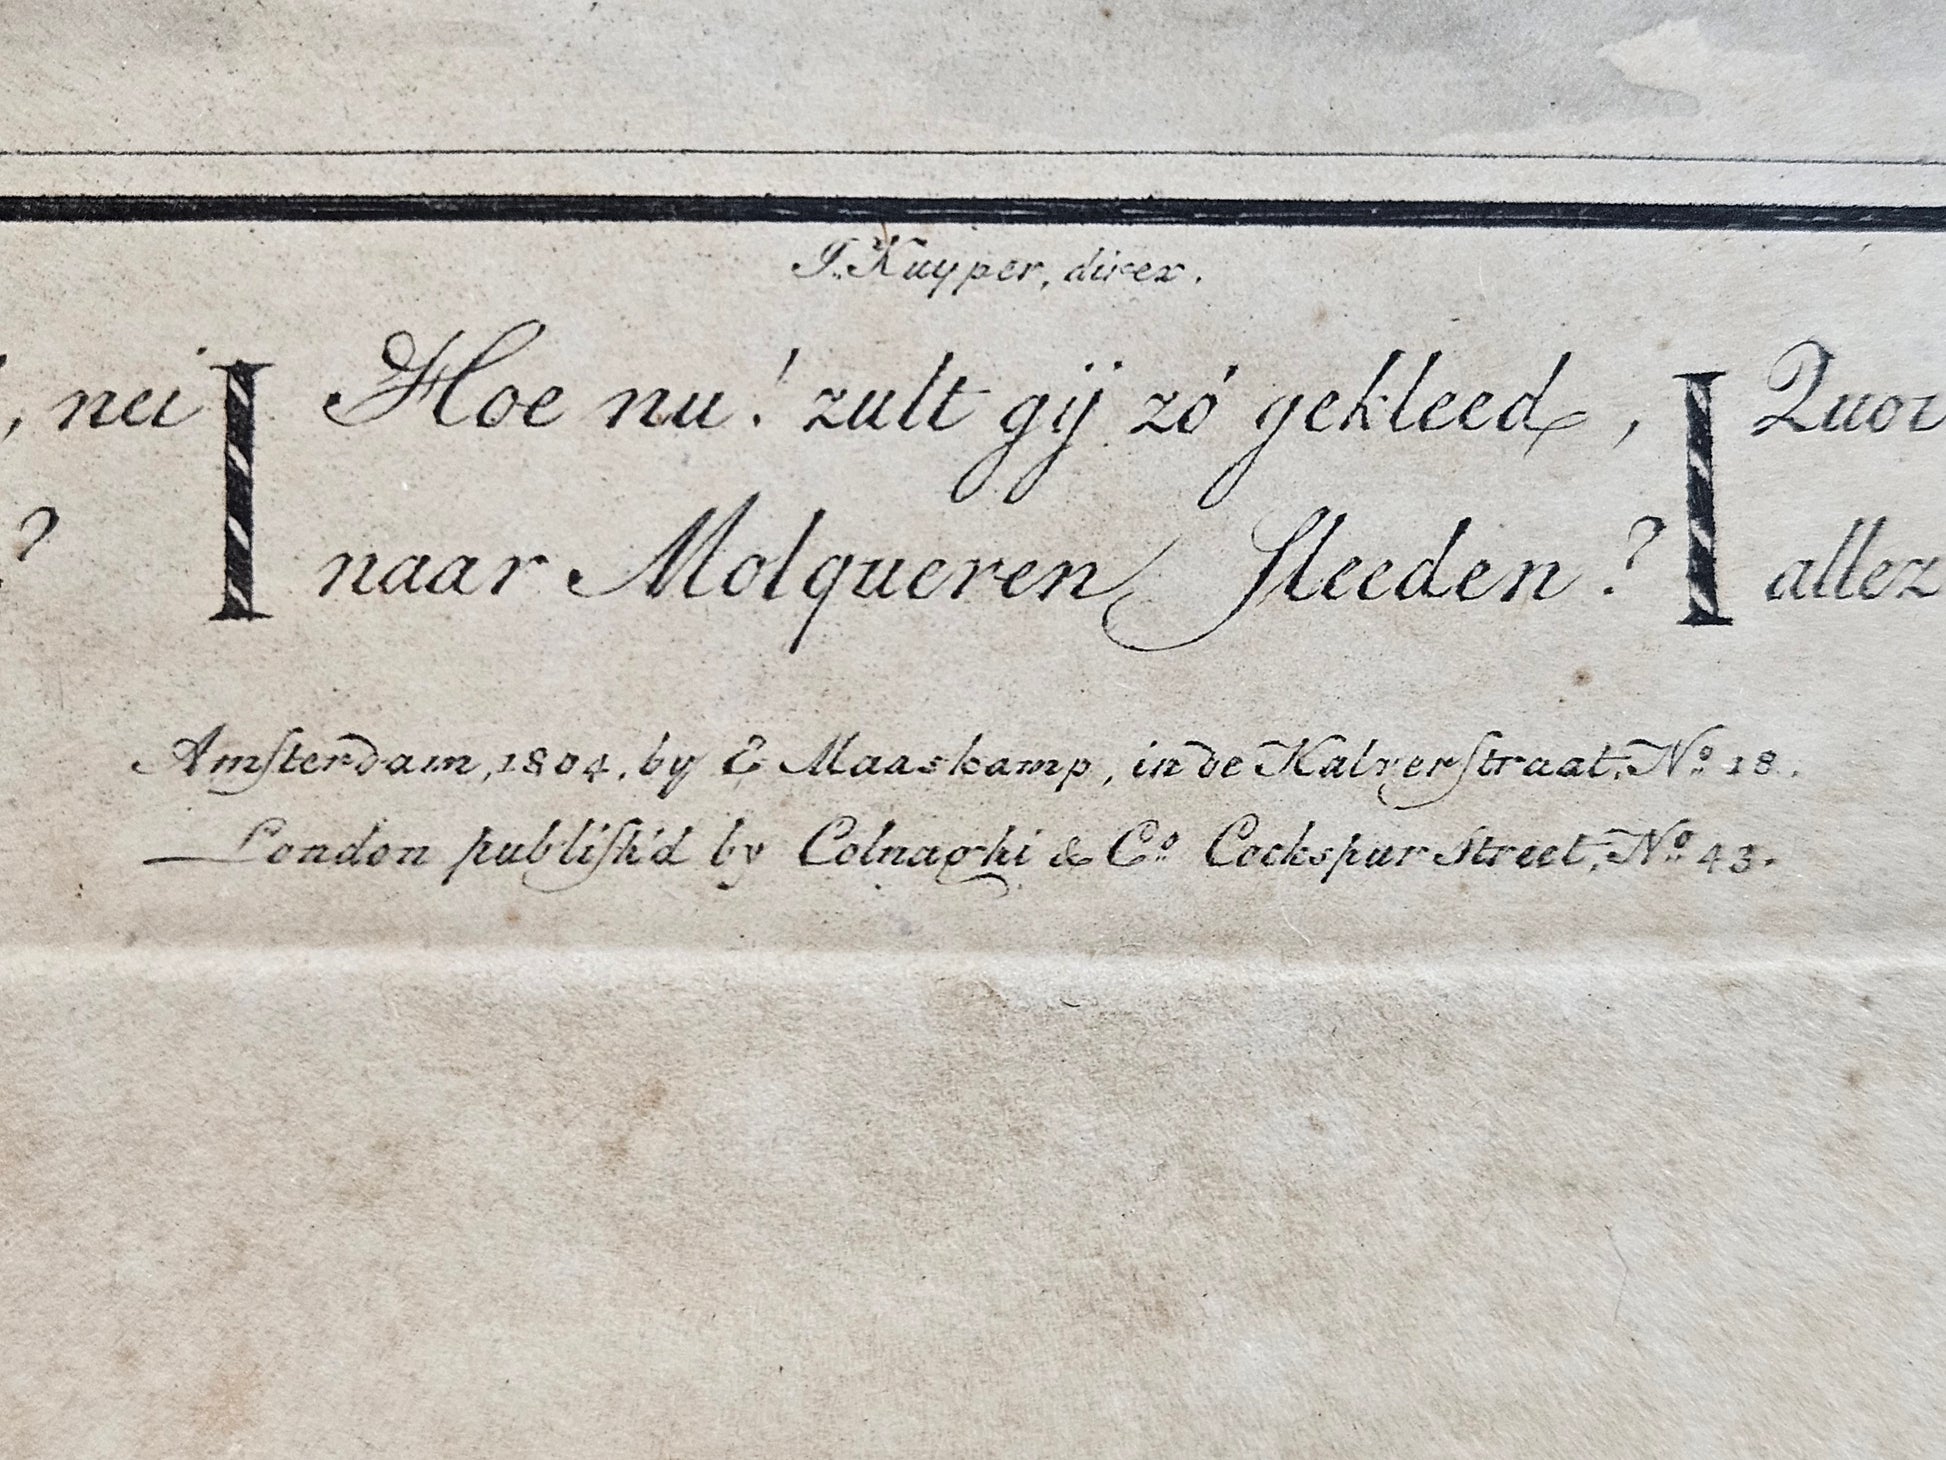 J. Kuyper, direx.
, nei Hoe nu! zult gij zó gekleed, Quoi
? naar Molqueren Sleeden? allez
Amſterdam, 1804, by E Maaskamp, in de Kalverſtraat, Nº 18.
London publiſh'd by Colnaghi & Cº Cockspur Street, Nº 43.